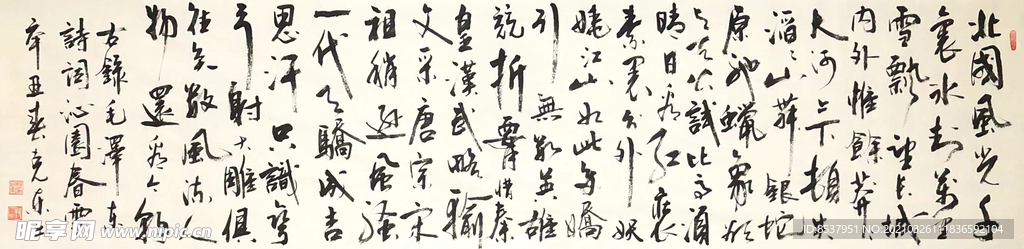 北國風光千
裏冰封萬里
雪飄望長城
内外惟餘莽
大河上下頓失
滔々山舞銀蛇
原馳蠟象欲
与天公試比高須
晴日看紅裝
素裹分外妖
嬈江山如此多嬌
引無數英雄
競折腰惜秦
皇漢武略輸
文采唐宗宋
祖稍遜風騷
一代天驕成吉
思汗只識彎
弓射大雕俱
往矣數風流人
物還看今朝
右錄毛澤東
詩詞沁園春雪
辛丑春克
昵享网 www.nipic.cn